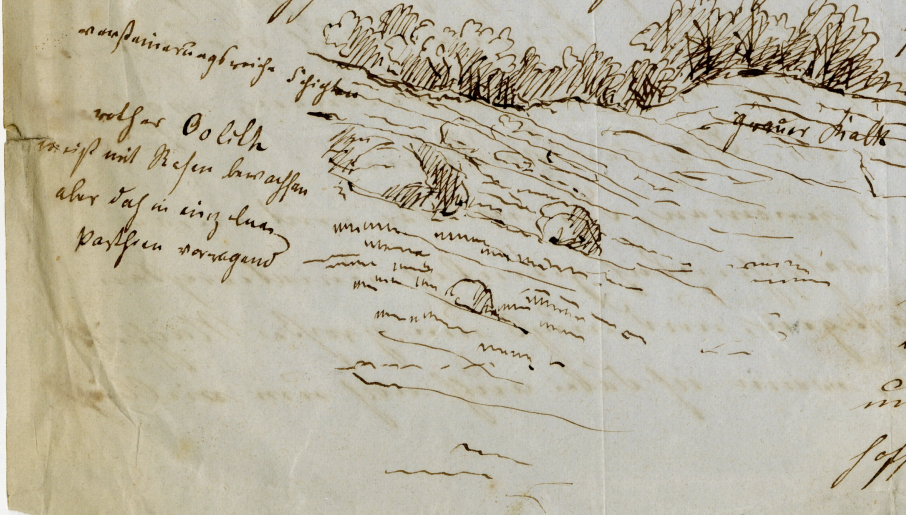 versteinerungsreiche Schichten
rother Oolith
meist mit Rasen bewachsen
aber doch in einzelnen
Parthien vorragend
grauer Kalk